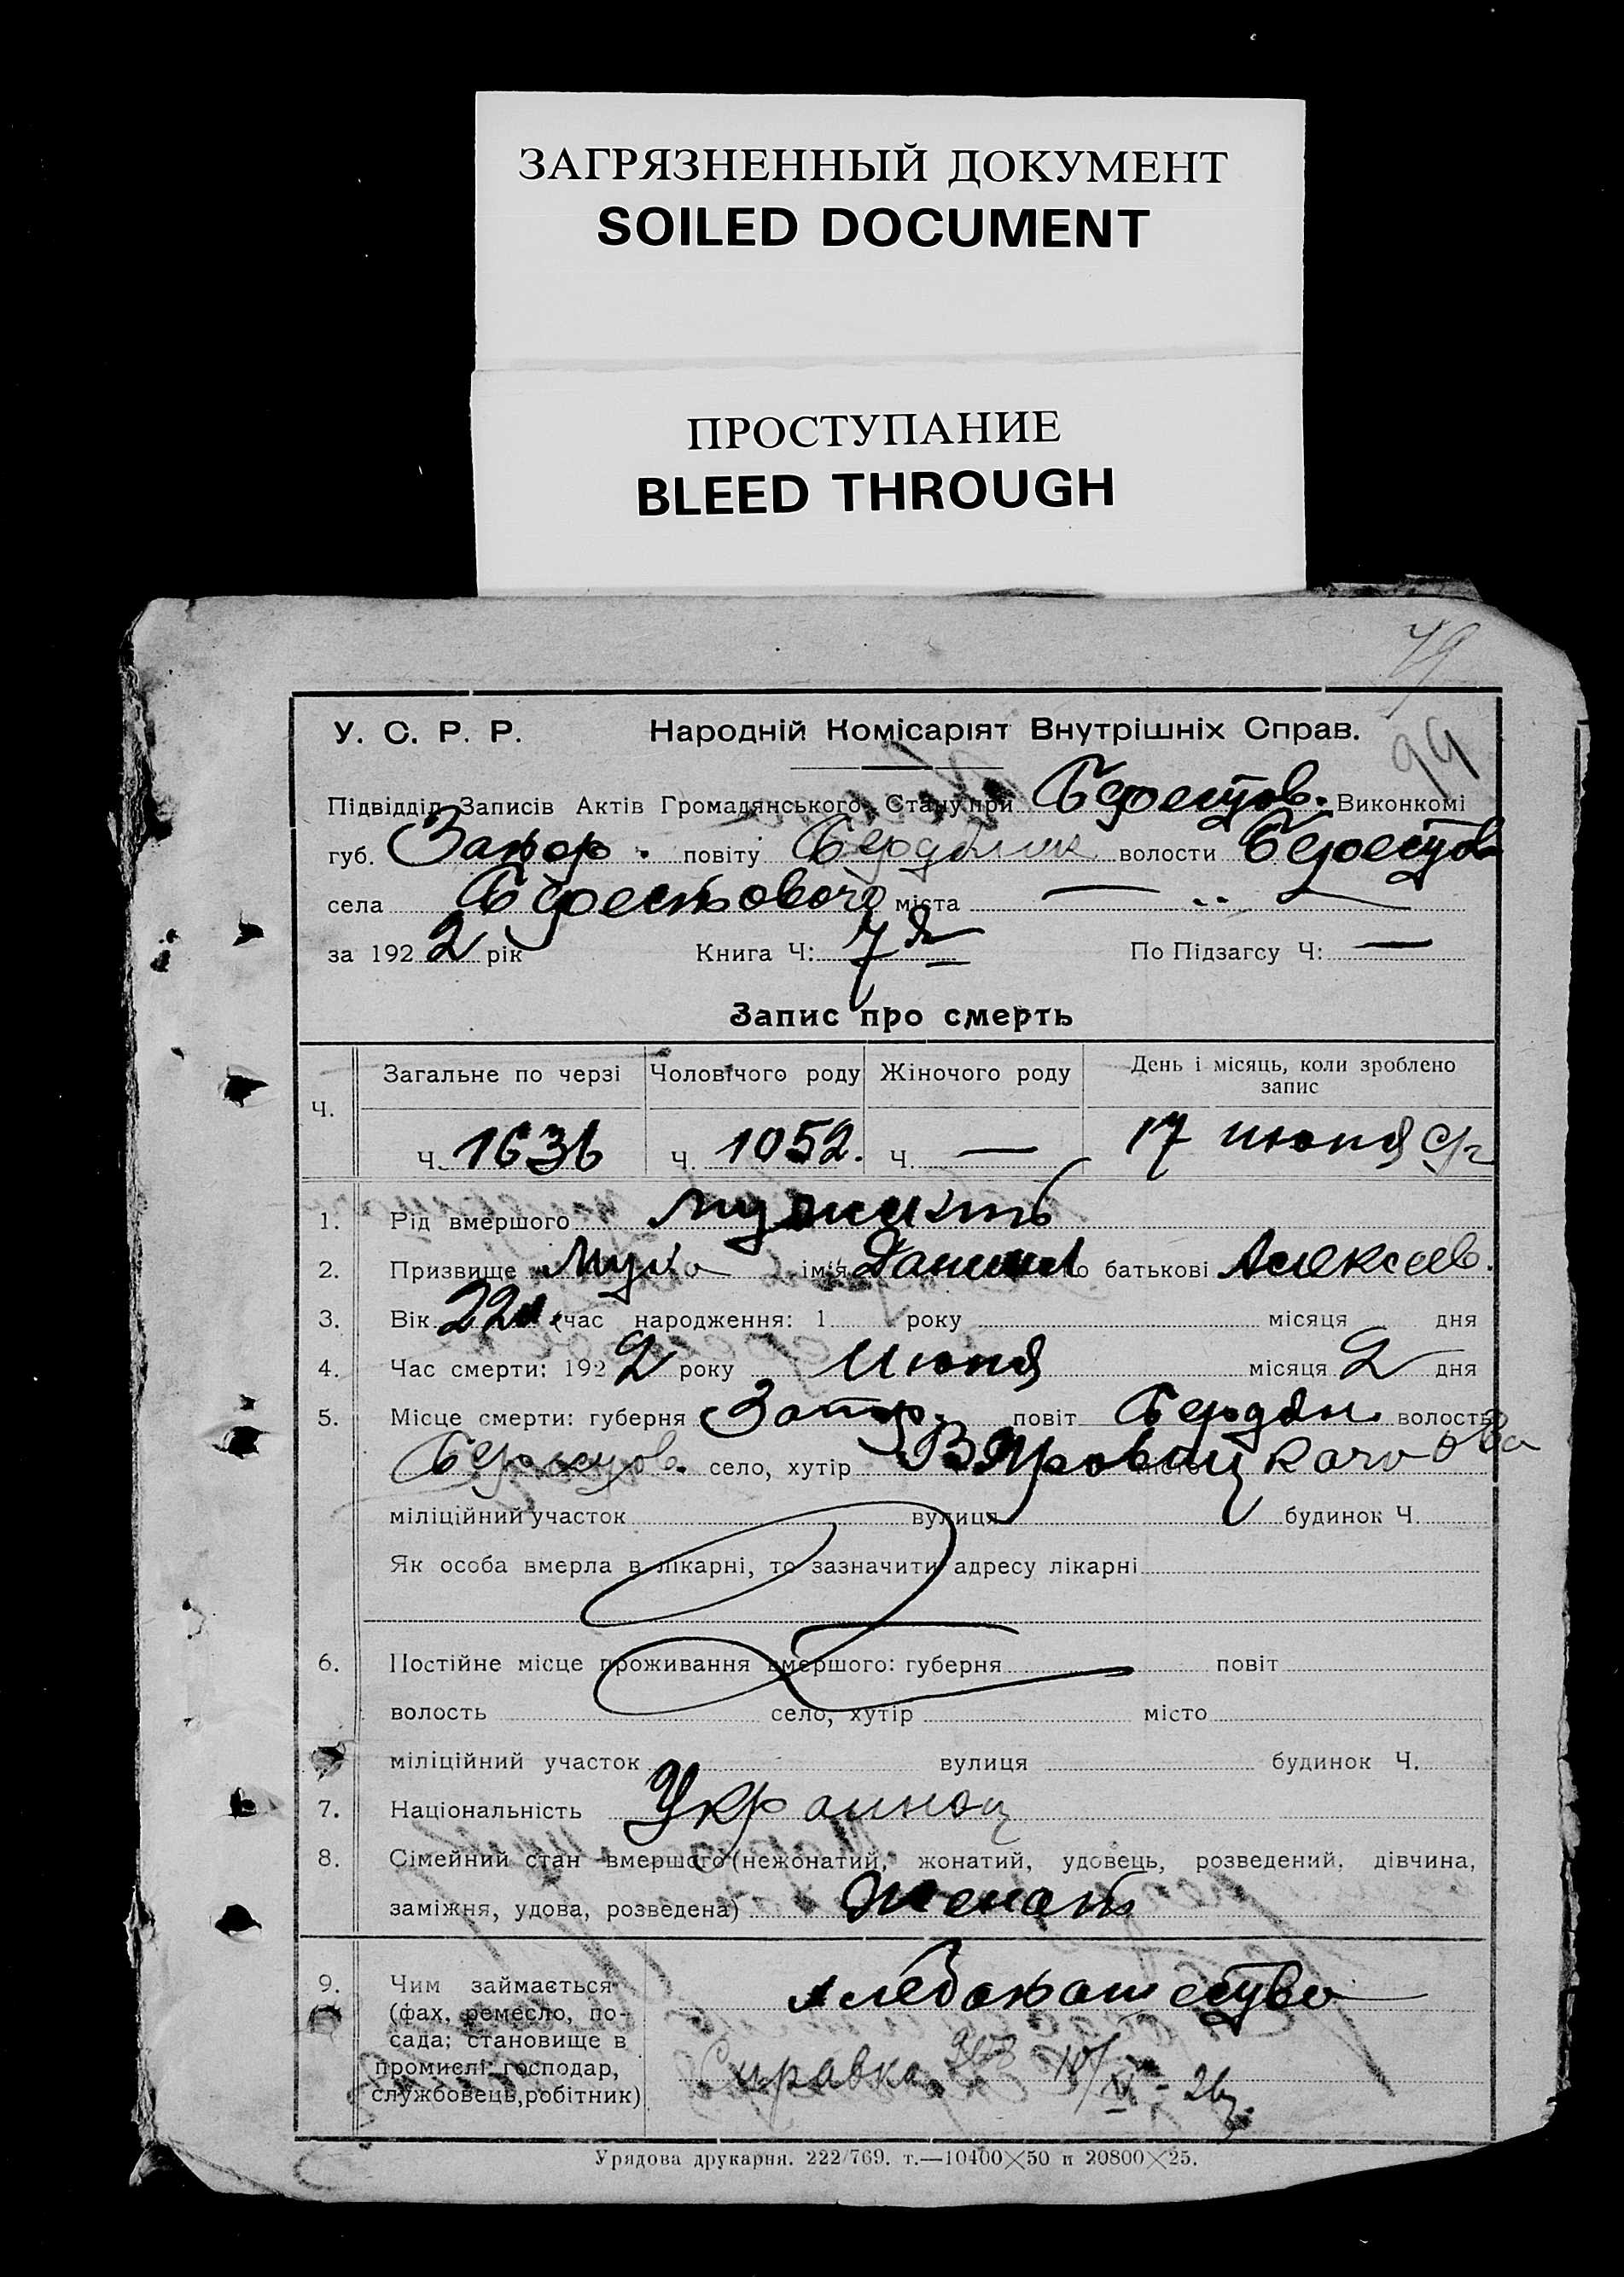 ЗАГРЯЗНЕННЫЙ ДОКУМЕНТ
SOILED DOCUMENT
ПРОСТУПАНИЕ
BLEED THROUGH
У. С. Р. Р. Народній Комісаріят Внутрішніх Справ.
99
Підвідділ Записів Актів Громадянського Стану при Берестов. Виконкомі
губ. Запор. повіту Бердянск волости Берестов
села Берестового міста —
за 1922 рік Книга Ч: 7я По Підзагсу Ч: —
Запис про смерть
Ч. Загальне по черзі Чоловічого роду Жіночого роду День і місяць, коли зроблено запис
Ч. 1636 Ч. 1052. Ч. — 17 июня с/г
1. Рід вмершого
2. Призвище Муха ім'я Даниил по батькові Алексеев.
3. Вік 22 л. час народження: 1 року місяця дня
4. Час смерти: 1922 року Июня місяця 2 дня
5. Місце смерти: губерня Запор. повіт Бердян. волость
Берестов. село, хутір місто
міліційний участок вулиця будинок Ч.
Як особа вмерла в лікарні, то зазначити адресу лікарні
6. Постійне місце проживання вмершого: губерня повіт
волость село, хутір місто
міліційний участок вулиця будинок Ч.
7. Національність Украинец
8. Сімейний стан вмершого (нежонатий, жонатий, удовець, розведений, дівчина,
заміжня, удова, розведена) Женат
9. Чим займається хлебопашество
(фах, ремесло, по-
сада; становище в
промислі: господар, Справка
службовець, робітник)
Урядова друкарня. 222/769. т.—10400×50 и 20800×25.